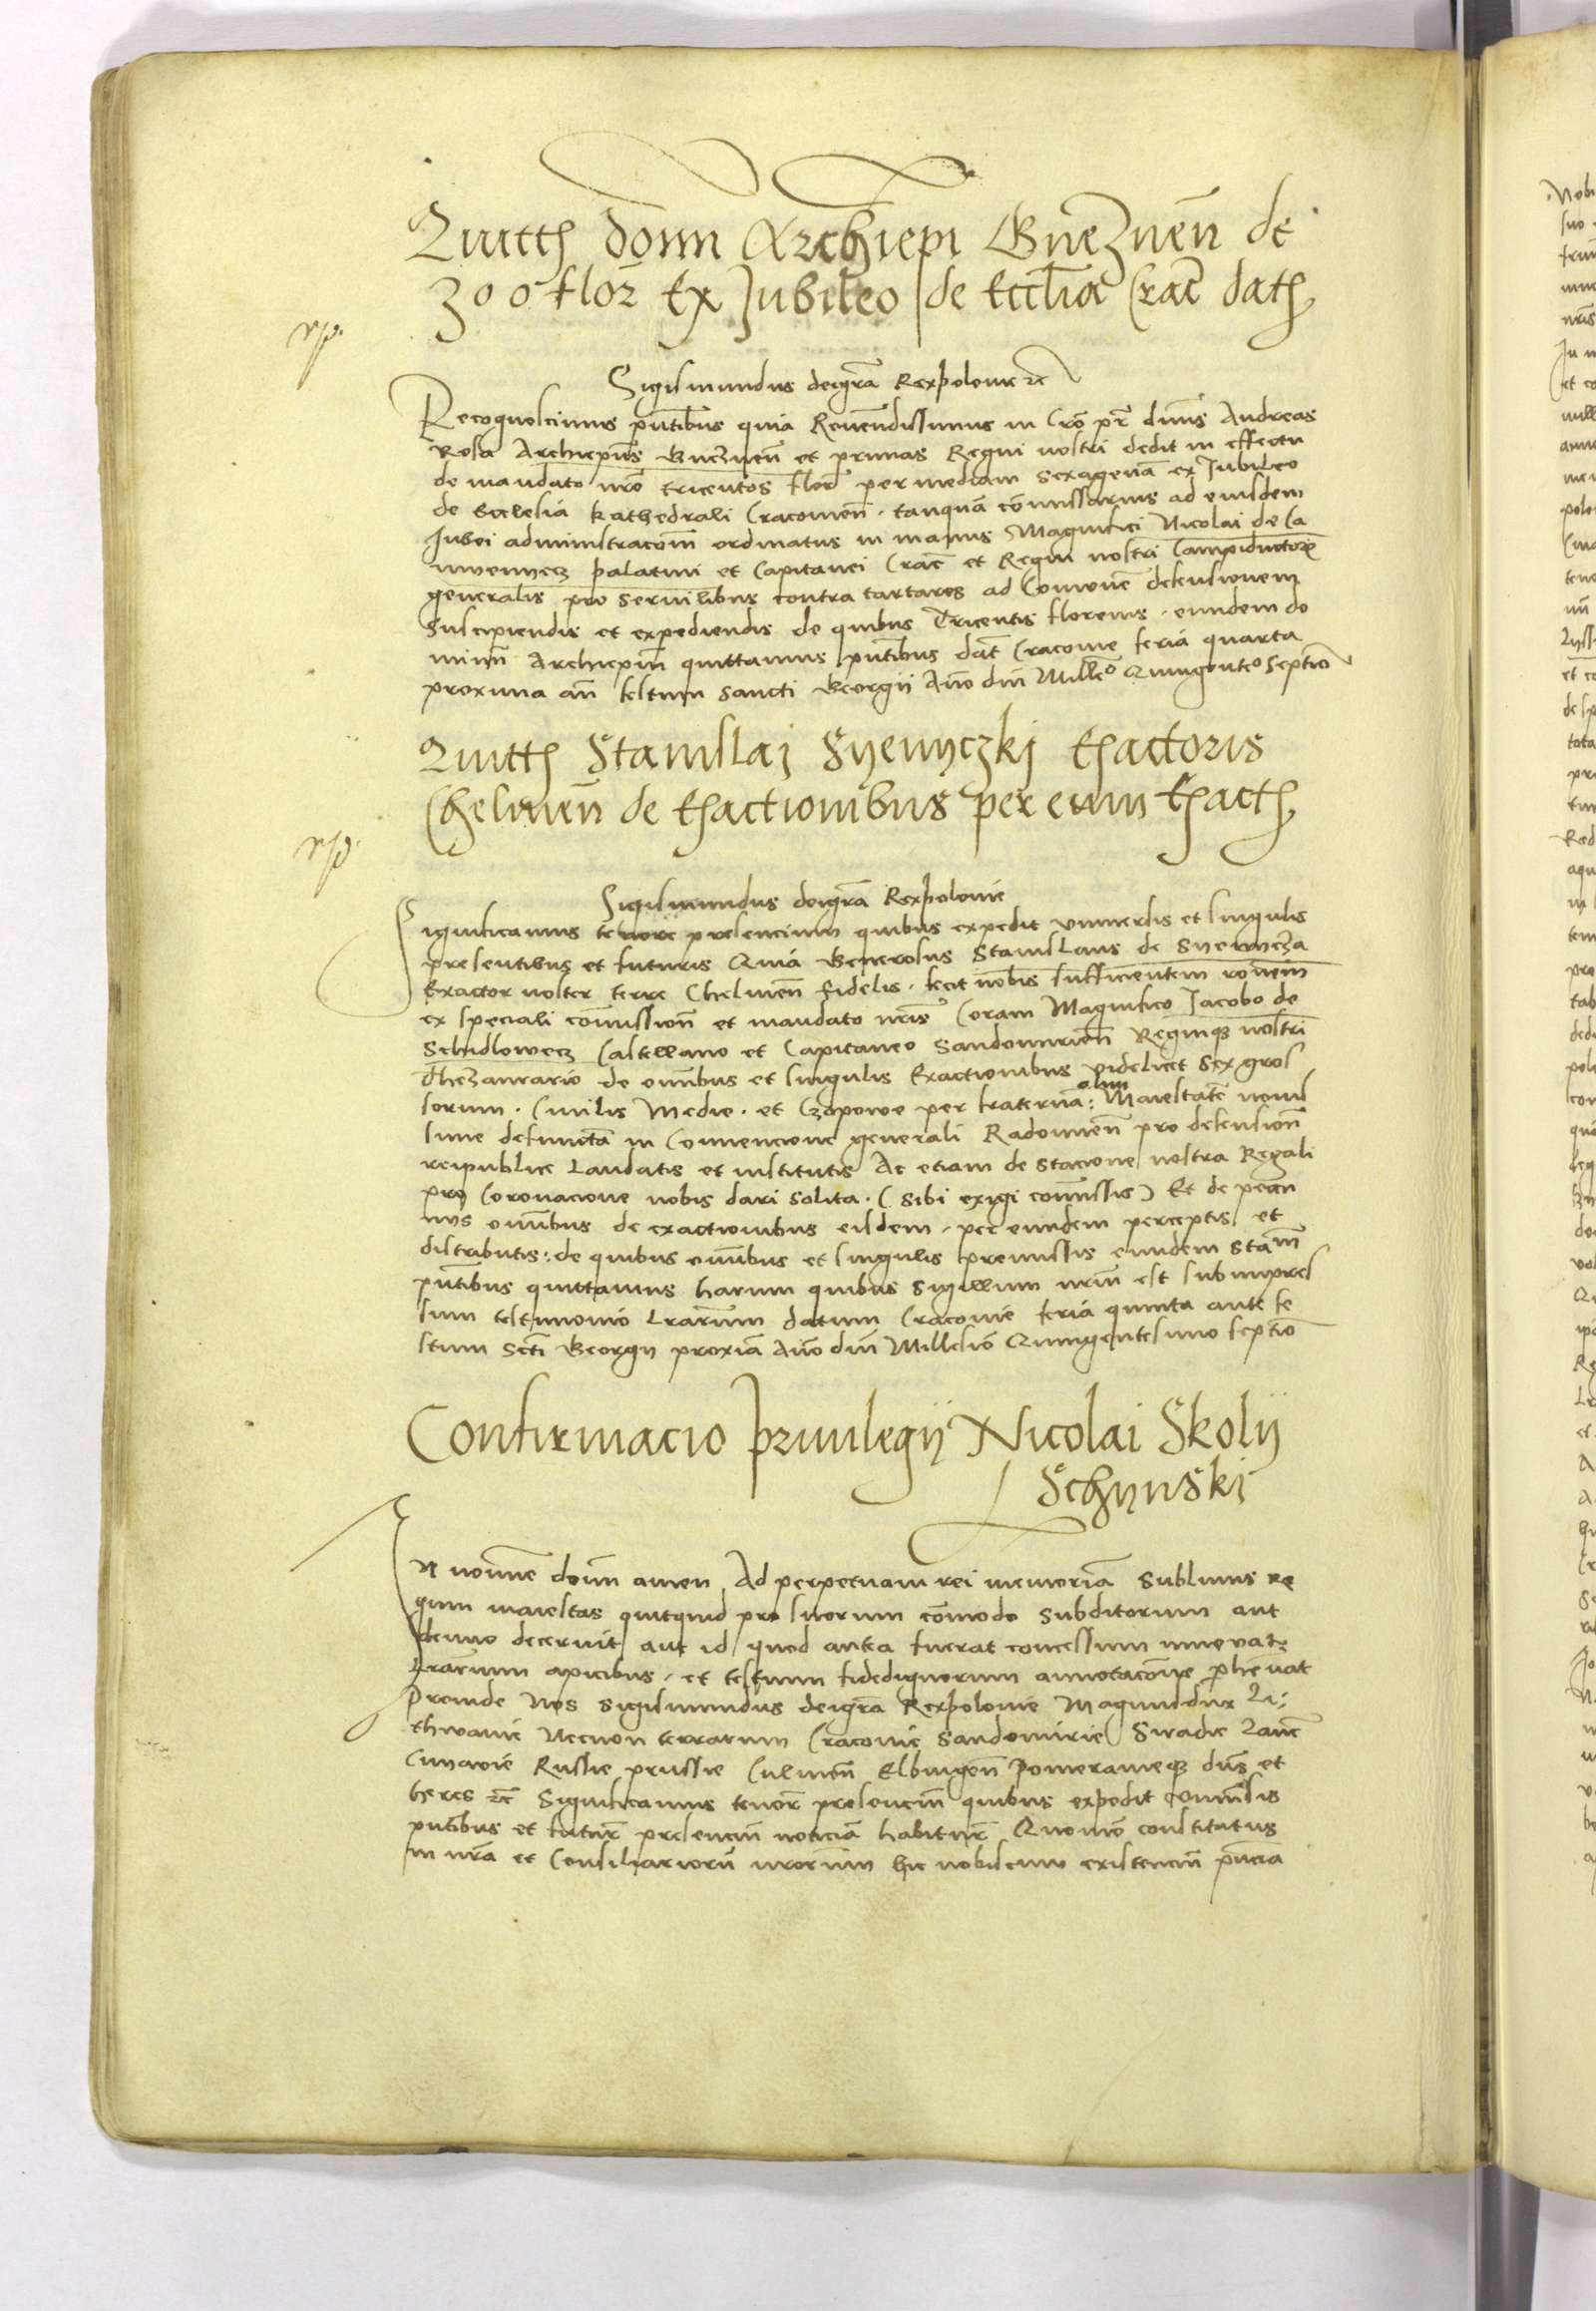 Quitt domi Archiepi Gneznen de
300 flor Ex Jubileo de Ecclia Crac dat
Sigismundus dei gra Rex polonie etc
Recognoscimus putibus quia Reuendissimus in Cro pr dnus Andreas
Rosa Archiepus Gneznen et primas Regni nostri dedit in effectu
de mandato nro tricentos flor per mediam sexagena ex Jubileo
de Ecclesia kathedrali Cracouien tanqua comissarius ad eiusdem
Jubei administracom ordinatus in manus Magnifici Nicolai de Ca
myenyecz palatini et Capitanei Crac et Regni nostri Campiductoris
generalis pro seruilibus contra tartaros ad Comone defensionem
suscipiendis et expediendis de quibus Tricentis florenis eundem do
minu Archiepm quittamus putibus dat Cracouie feria quarta
proxima an festum sancti Georgii Ano dni Milleo Quingenteo septio
Quitt Stanislaj Syenyczkj Exactoris
Chelmen de Exactionibus per eum Exact
Sigismundus dei gra Rex polonie
Significamus tenore presencium quibus expedit vniuersis et singulis
presentibus et futuris Quia Generosus Stanislaus de Syennycza
Exactor noster terre Chelmen fidelis fecit nobis sufficientem ronem
ex speciali comission et mandato nris Coram Magnifico Jacobo de
Schidlowecz Castellano et Capitaneo Sandomirien Regnique nostri
Thezaurario de omibus et singulis Exactionibus videlicet sex gros
sorum Ciuilis Medie et Czopowe per fraterna olim Maiestate nouis
sime defuncta in Conuencione generali Radomien pro defension
reipublice laudatis et institutis Ac etiam de stacione nostra Regali
pro Coronacione nobis dari solita (sibi exigi comissis) Et de pecun
nys omibus de exactionibus eisdem per eundem perceptis et
distributis: de quibus omibus et singulis premissis eundem Stam
putibus quittamus harum quibus sigillum nrm est subimpres
sum testimonio lrarum datum Cracouie feria quinta ante fe
stum scti Georgii proxia Ano dni Millesio Quingentesimo septio
Confirmacio priuilegij Nicolai Skolij
Schynskj
In nomine domi amen Ad perpetuam rei memoria Sublimis re
gum maiestas quitquid pro suorum comodo subditorum aut
denuo decernit aut id quod antea fuerat concessum innouat
lrarum apicibus et testium fidedignorum annotacione phenat
Proinde Nos Sigismundus dei gra Rex polonie Magnusdux Li:
thwanie Necnon terrarum Cracouie Sandomirie Siradie Lanc
Cuiauie Russie prussie Culmen Elbingen Pomeranieque dns et
heres etc Significamus tenor presencim quibus expedit vniuersis
putibus et futur presencim noticia habitur Quomo constitutus
in nra et Consiliarioru nrorum hic nobiscum existencim pncia